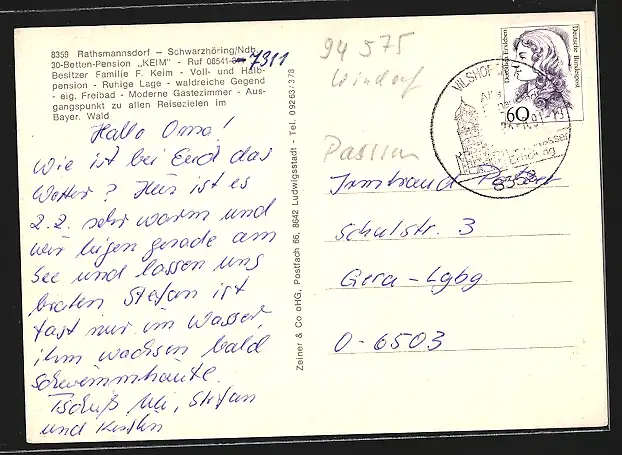 8359 Rathsmannsdorf – Schwarzhöring/Ndb.
30-Betten-Pension „KEIM" - Ruf 08541- 7911
Besitzer Familie F. Keim - Voll- und Halb-
pension - Ruhige Lage - waldreiche Gegend
- eig. Freibad - Moderne Gästezimmer - Aus-
gangspunkt zu allen Reisezielen im
Bayer. Wald
Hallo Oma!
Wie ist bei Euch das
Wetter? Hier ist es
z.Z. sehr warm und
wir liegen gerade am
See und lassen uns
braten. Stefan ist
fast nur im Wasser,
ihm wachsen bald
Schwimmhäute.
Tschüß Uli, Stefan
und Kerstin
Zeiner & Co oHG, Postfach 66, 8642 Ludwigsstadt - Tel. 09263/378
94 575
Windorf
Passau
Deutsche Bundespost
60
VILSHOFEN
8358
Irmtraud
Schulstr. 3
Gera-Lgbg.
O-6503